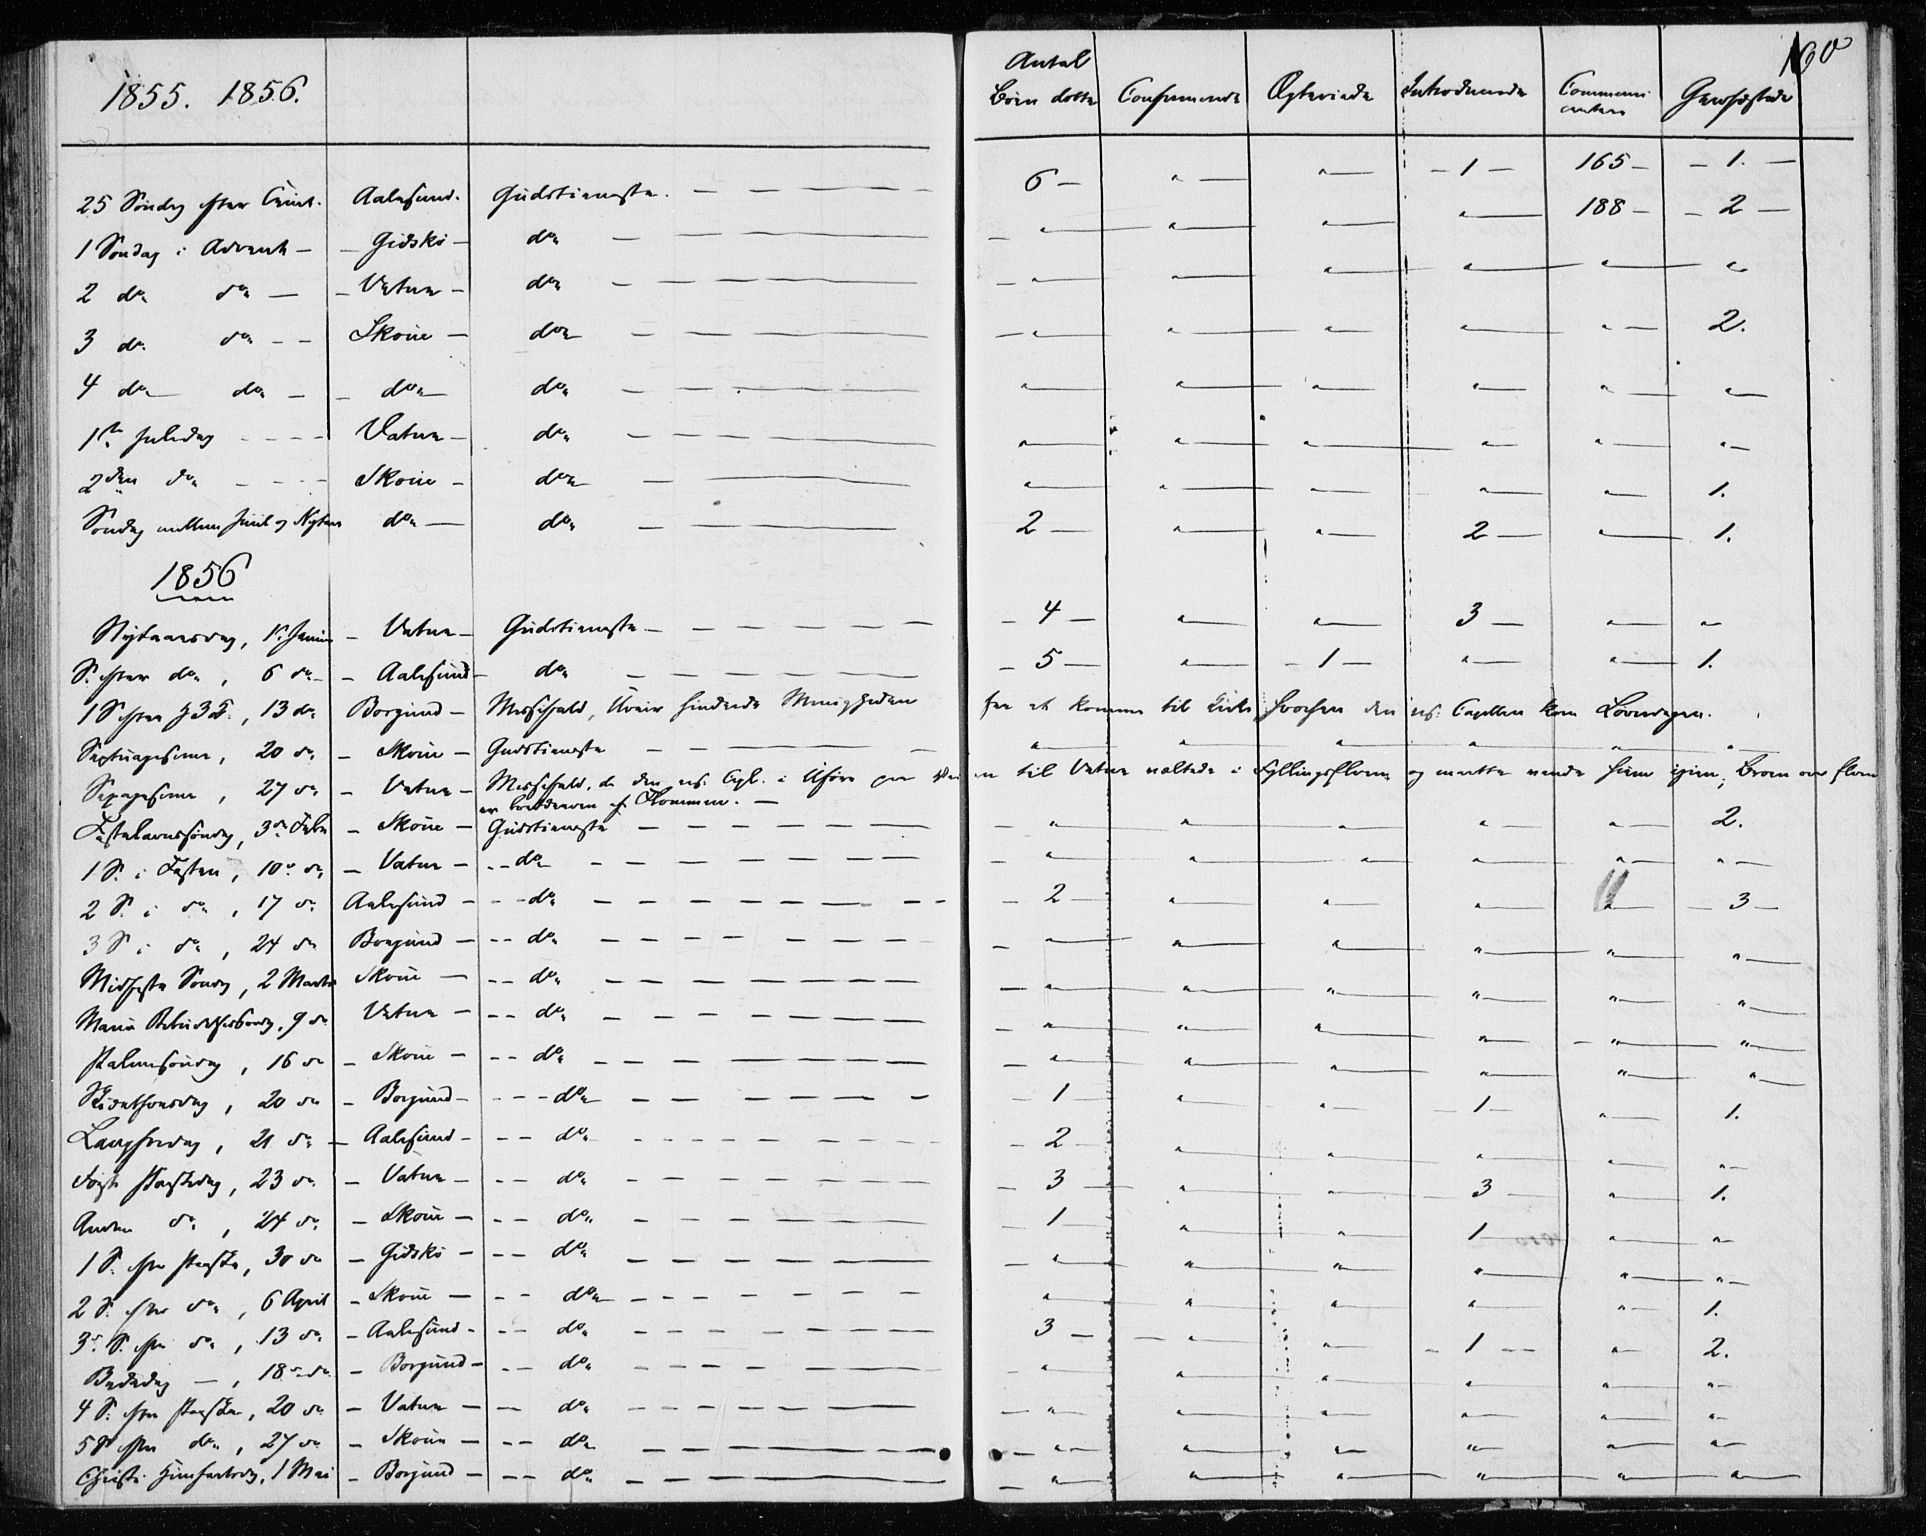 160
1855. 1856.
Antal Børn døbte | Confirmerede | Ægteviede | Introducerede | Communicanter | Gravfæstede
25 Søndag efter Trinit. | Aalesund. | Gudstieneste. | 6 | " | " | 1 | 165 | 1.
1 Søndag i Advent | Gidskø | do | " | " | " | " | 188 | 2
2 do do | Vatne | do | " | " | " | " | " | "
3 do do | Skoue | do | " | " | " | " | " | 2.
4 do do | do | do | " | " | " | " | " | "
1ste Juledag | Vatne | do | " | " | " | " | " | "
2den do | Skoue | do | " | " | " | " | " | 1.
Søndag mellem Juul og Nytaar | do | do | 2 | " | " | 2 | " | 1.
1856
Nytaarsdag, 1. Januar | Vatne | Gudstieneste | 4 | " | " | 3 | " | "
S. efter do, 6 do | Aalesund | do | 5 | " | 1 | " | " | 1.
1 S efter H3K., 13 do | Borgund | Messefald, Uveir hindrede Menigheden fra at komme til Kirke, hvorfor den res: Capellan kom Løverdagen.
Septuagesima, 20 do | Skoue | Gudstieneste | " | " | " | " | " | "
Sexagesima, 27 do | Vatne | Messefald, da den res. Cpl. i Uføre paa Veien til Vatne væltede i Fyllingselven og maatte vende hiem igien; Broen over Elven
er bortdreven af Flommen.
Fastelavnssøndag, 3die Febr | Skoue | Gudstieneste | " | " | " | " | " | 2.
1 S. i Fasten, 10. do | Vatne | do | " | " | " | " | " | "
2 S. i do, 17 do | Aalesund | do | 2 | " | " | " | " | 3
3 S i do, 24 do | Borgund | do | " | " | " | " | " | "
Midfaste Søndag, 2 Marts | Skoue | do | " | " | " | " | " | "
Mariæ Bebudelsesdag, 9 do | Vatne | do | " | " | " | " | " | "
Palmesøndag, 16 do | Skoue | do | " | " | " | " | " | "
Skiærthorsdag, 20 do | Borgund | do | 1 | " | " | 1 | " | 1.
Langfredag, 21 do | Aalesund | do | 2 | " | " | " | " | "
Første Paaskedag, 23 do | Vatne | do | 3 | " | " | 3 | " | 1.
Anden do, 24 do | Skoue | do | 1 | " | " | 1 | " | "
1 S. efter Paaske, 30 do | Gidskø | do | " | " | " | " | " | "
2 S. efter do, 6 April | Skoue | do | " | " | " | " | " | 1.
3. S. efter do, 13 do | Aalesund | do | 3 | " | " | 1 | " | 2.
Bededag, 18. do | Borgund | do | " | " | " | " | " | "
4 S. efter Paaske, 20 do | Vatne | do | " | " | " | " | " | "
5 S efter do, 27 do | Skoue | do | " | " | " | " | " | "
Christi Himmelfartsdag, 1 Mai | Borgund | do | " | " | " | " | " | "